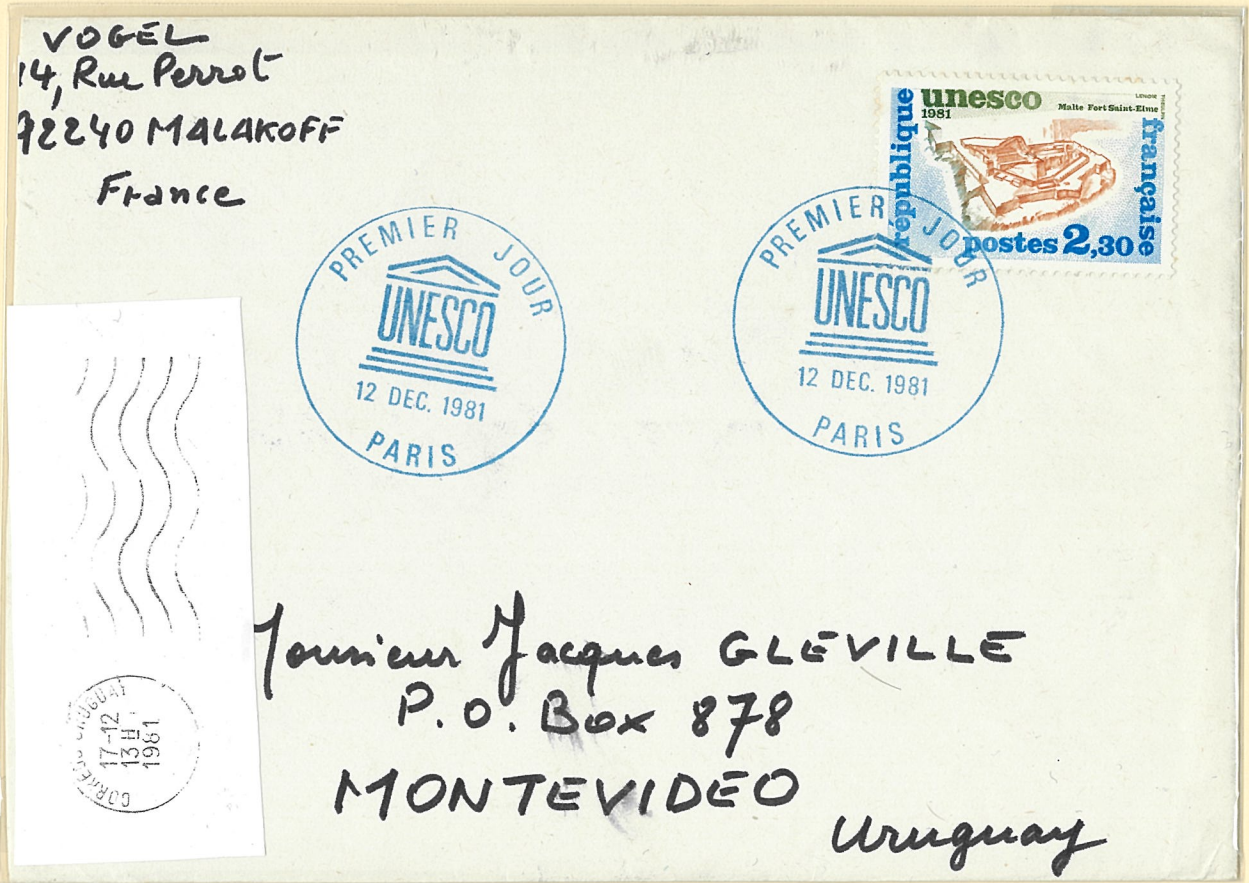 VOGEL
14, Rue Perrot
92240 MALAKOFF
France
unesco
1981
Malte Fort Saint-Elme
république
française
postes 2,30
PREMIER JOUR
UNESCO
12 DEC. 1981
PARIS
PREMIER JOUR
UNESCO
12 DEC. 1981
PARIS
CORREOS URUGUAY
17-12
13H
1981
Monsieur Jacques GLEVILLE
P.O. Box 878
MONTEVIDEO
Uruguay